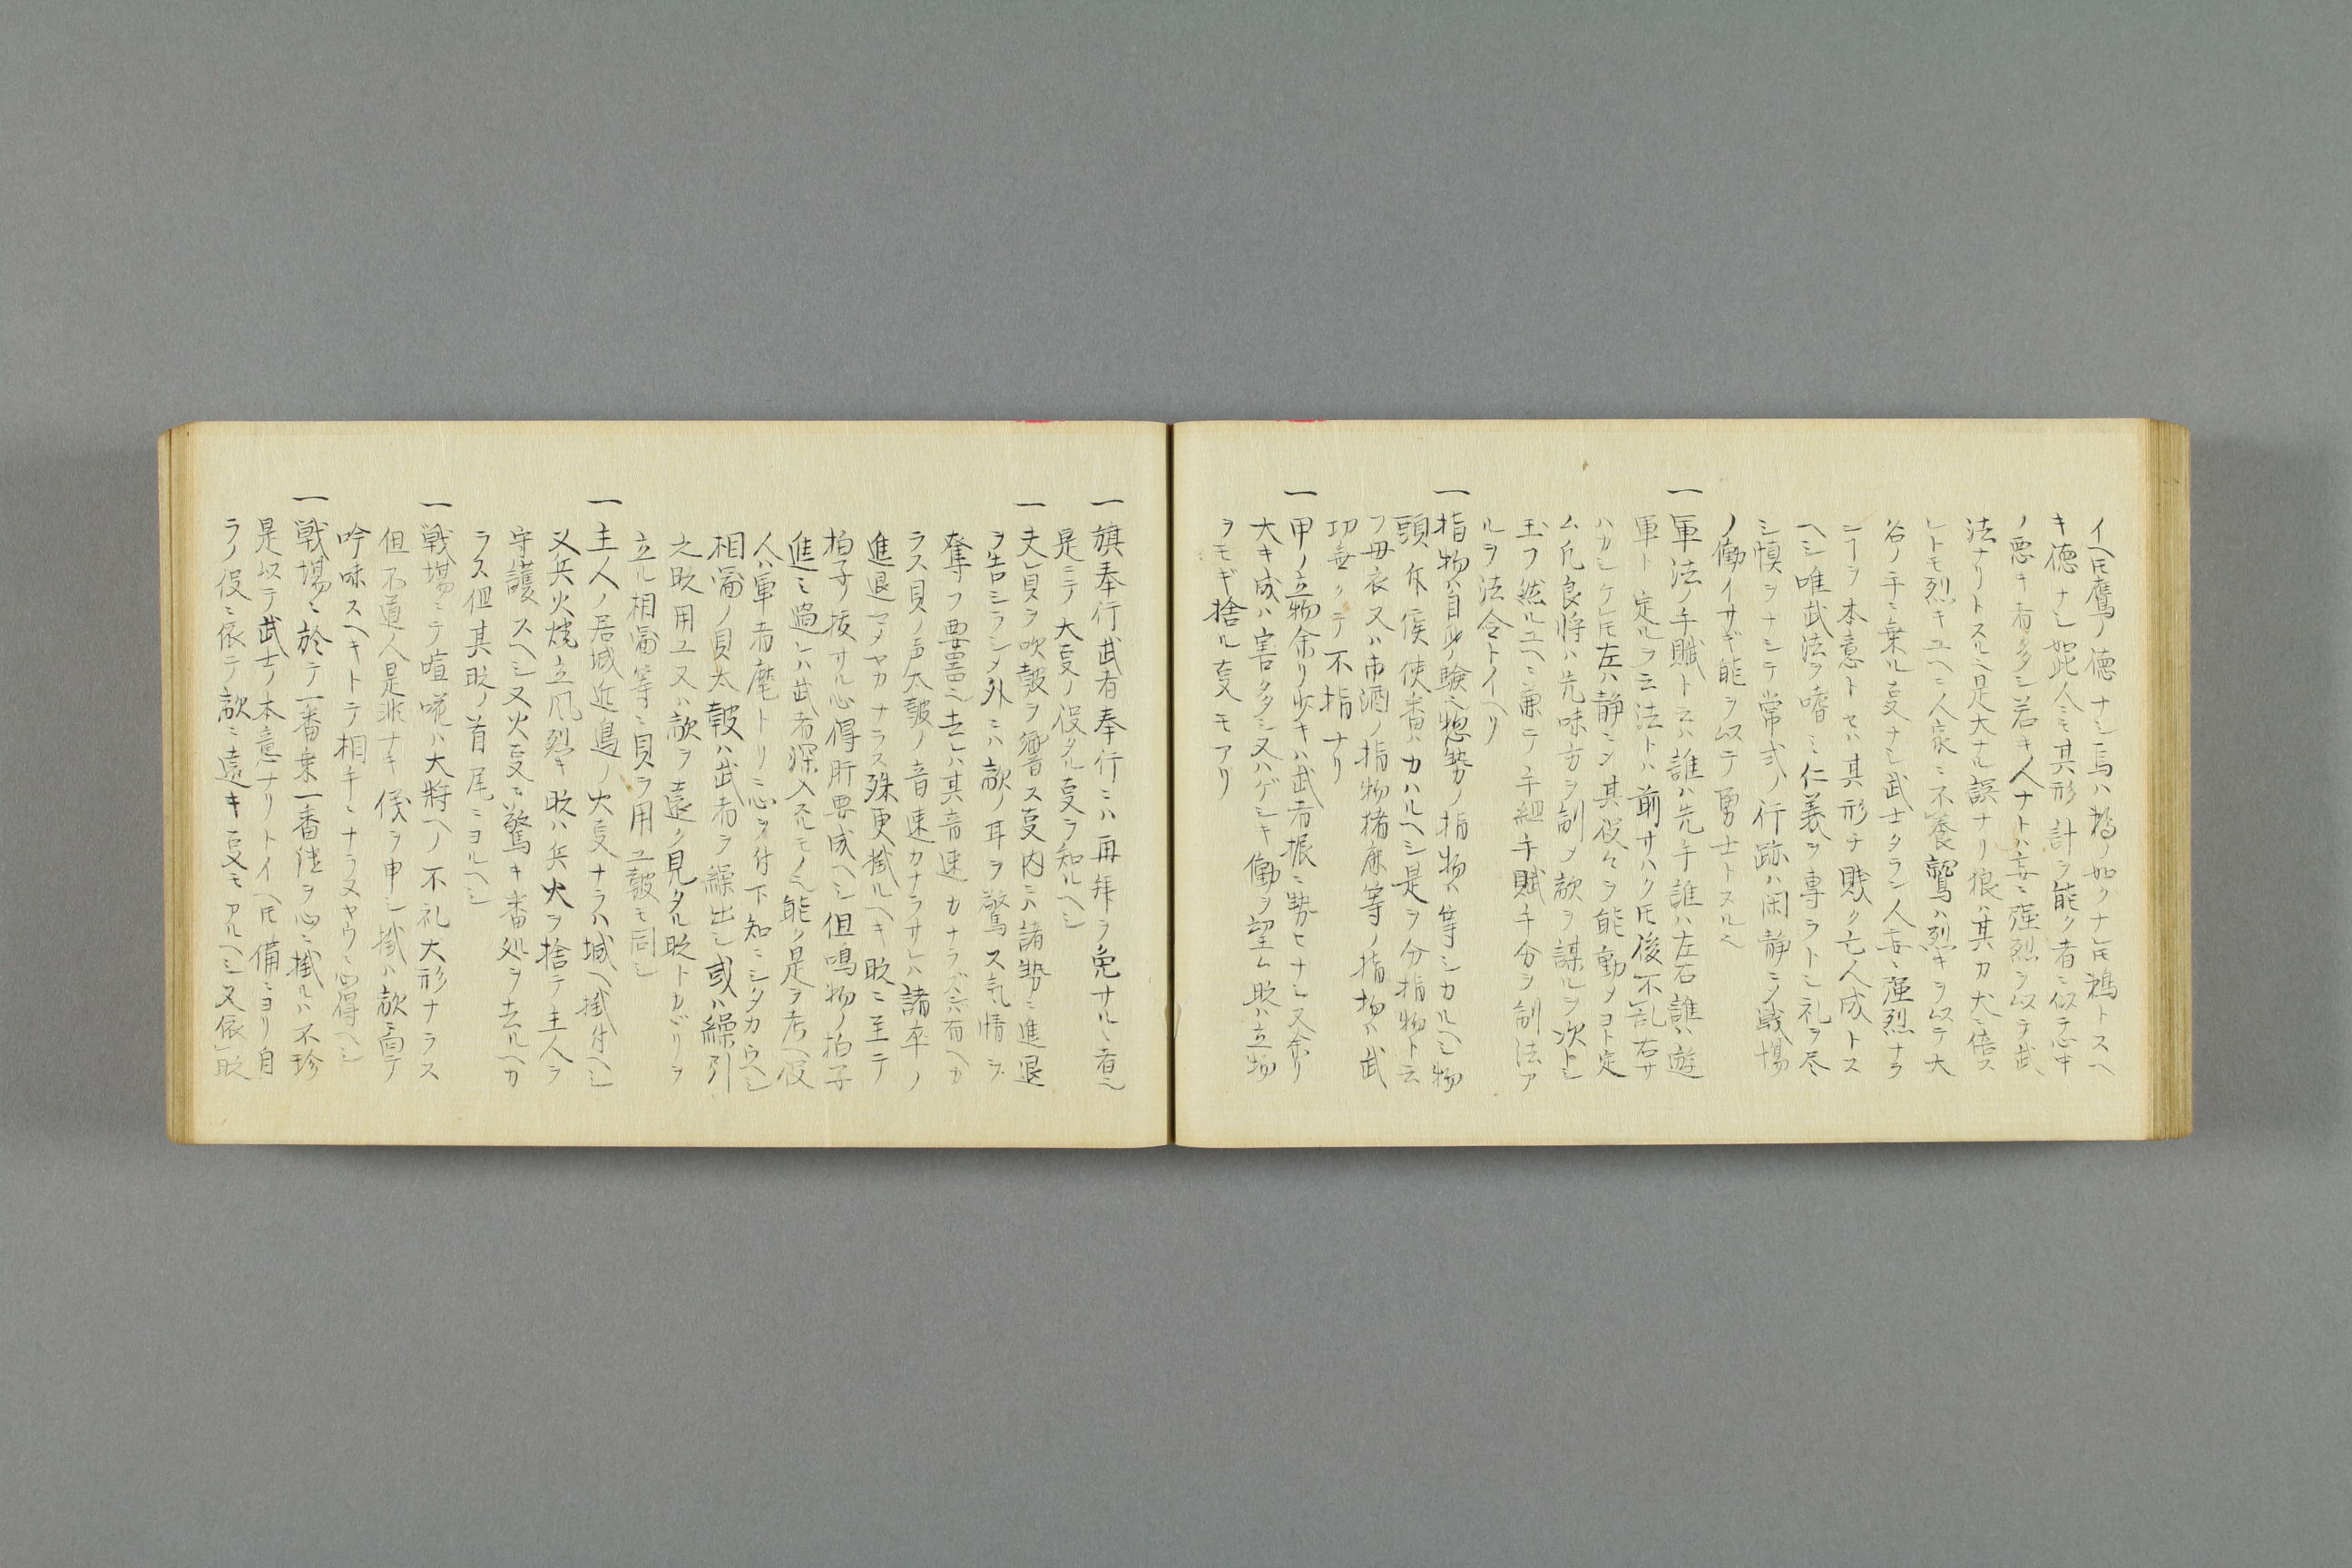 イヘ𪜈鷹ノ徳ナシ烏ハ鵜ノ如クナレ𪜈鵜トスヘ
キ徳ナシ如此人ニモ其形計ヲ能ク者ニ似テ心中
ノ悪キ者多シ若キ人ナトハ妄ニ強烈ヲ以テ武
法ナリトスル是大ナル誤ナリ狼ハ其力犬ニ倍ス
レトモ烈キユヘニ人家ニ不養鷲ハ烈キヲ以テ大
谷ノ手ニ乗ル叓ナシ武士タラン人妄ニ強烈ナラ
ンーヲ本意トセハ其形チ賤ク亡人成トス
ヘシ唯武法ヲ嗜ミ仁義ヲ専ラトシ礼ヲ尽
シ慎ヲナシテ常式ノ行跡ハ閑静ニシ戦場
ノ働イサギ能ヲ以テ勇士トスル也
一軍法ノ手賦ト云ハ誰ハ先手誰ハ左右誰ハ遊
軍ト定ルヲ云法トハ前サハク𪜈後不乱右サ
ハカシケレ𪜈左ハ静ニシ其役々ヲ能勤メヨト定
ム凡良将ハ先味方ヲ制メ敵ヲ謀ルヲ次トシ
玉フ然ルユヘニ兼テ手組手賦手分ヲ制法ア
ルヲ法令トイヘリ
一指物ハ自身ノ験也惣勢ノ指物ハ等シカルヘシ物
頭斥侯使番ハカハルヘシ是ヲ分指物ト云
フ母衣又ハ[]ノ指物[]等ノ指物ハ武
功無クテ不指ナリ
一甲ノ立物余リ少キハ武者振ニ勢セナシ又余リ
大キ成ハ害多シ又ハゲシキ働ヲ望ム時ハ立物
ヲモギ捨ル叓モアリ
一旗奉行武者奉行ニハ再拜ヲ免サルヽ者也
是ニテ大叓ノ役タル叓ヲ知ルヘシ
一夫貝ヲ吹皷ヲ響ス叓内ニハ諸勢ニ進退
ヲ告シラシメ外ニハ敵ノ耳ヲ驚ス気情ヲ
奪フ要器也去レハ其音速カナラズハ有ヘカ
ラス貝ノ声太皷ノ音速カナラサレハ諸卒ノ
進退スメヤカナラス殊更掛ルヘキ時ニ至テ
拍子抜サル心得肝要成ヘシ但鳴物ノ拍子
進ミ過レハ武者深入スルモノ也能ク是ヲ考ヘ役
人ハ軍者麾トリニ心ヲ付下知ニシタカウヘシ
相図ノ貝太皷ハ武者ヲ繰出シ或ハ繰引
之時用ユ又ハ敵ヲ遠ク見タル時トカヾリヲ
立ル相図等ニ貝ヲ用ユ皷モ同シ
一主人ノ居城近邊ノ火叓ナラハ城ヘ掛付ヘシ
又兵火焼立風烈キ時ハ兵火ヲ捨テ主人ヲ
守護スヘシ又火叓ニ驚キ番処ヲ去ルヘカ
ラス但其時ノ首尾ニヨルヘシ
一戦場ニテ喧嘩ハ大将ヘノ不礼大形ナラス
但不道人是非ナキ儀ヲ申シ掛ハ敵ニ向テ
吟味スヘキトテ相手ニナラヌヤウニ心得ヘシ
一戦場ニ於テ一番乗一番鎗ヲ心ニ掛ルハ不珍
是以テ武士ノ本意ナリトイヘ𪜈備ニヨリ自
ラノ役ニ依テ敵ニ遠キ叓モアルヘシ又依時